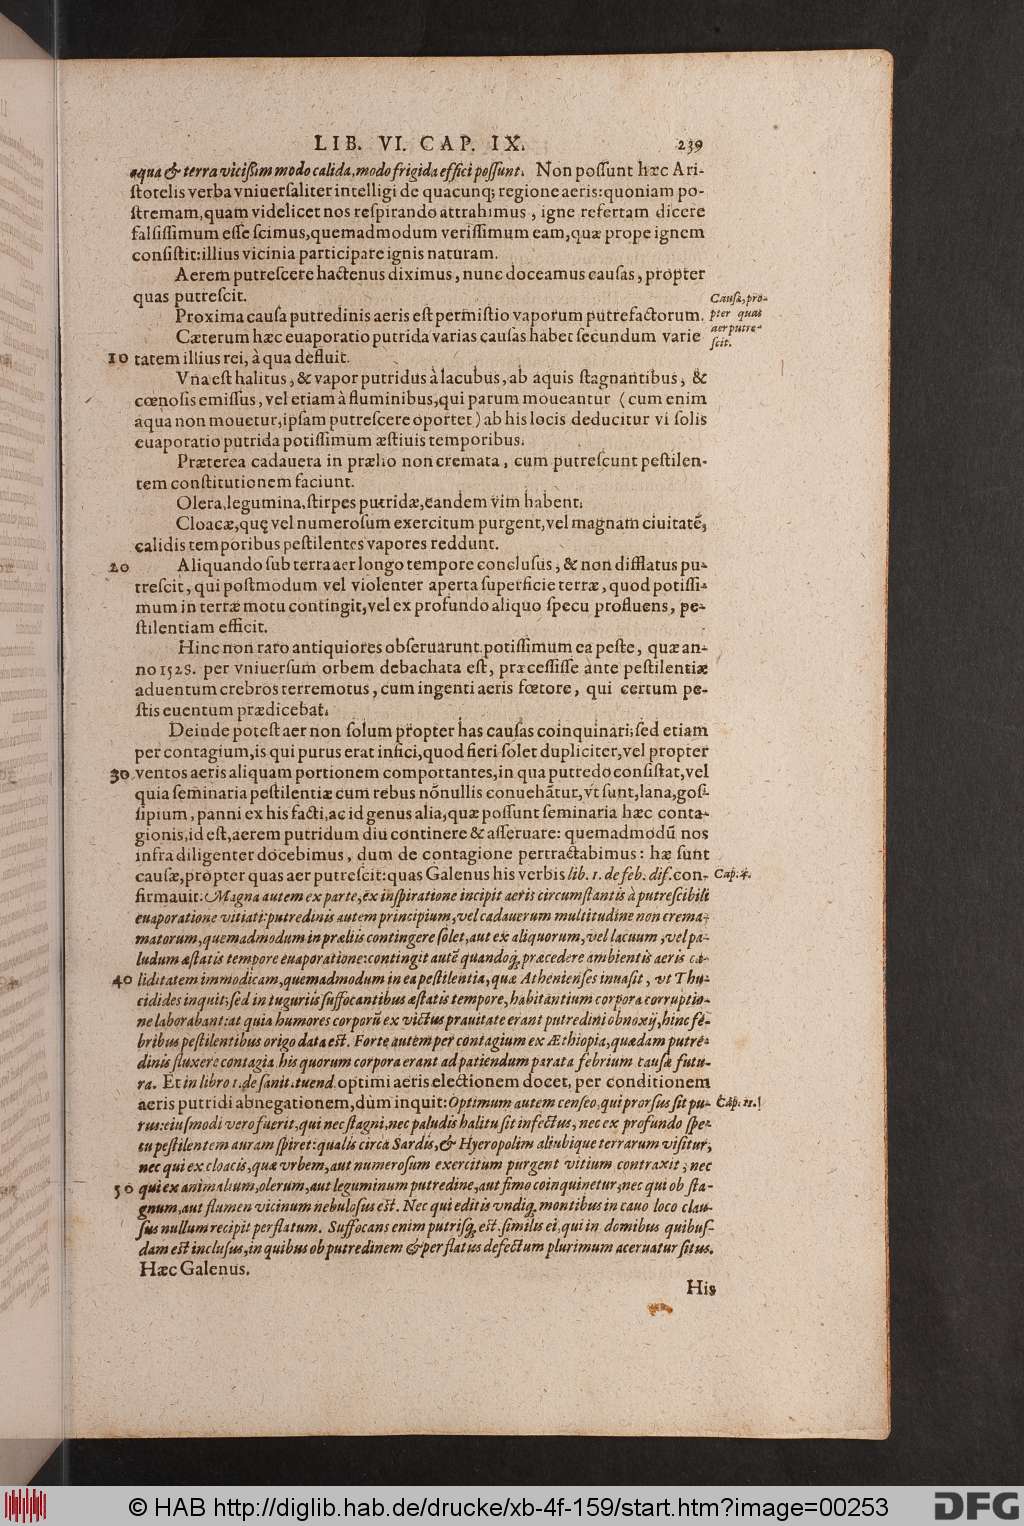 LIB. VI. CAP. IX. 239
aqua & terra vicißim modo calida, modo frigida effici possunt. Non possunt hæc Ari-
stotelis verba vniuersaliter intelligi de quacunq; regione aeris: quoniam po-
stremam, quam videlicet nos respirando attrahimus, igne refertam dicere
falsissimum esse scimus, quemadmodum verissimum eam, quæ prope ignem
consistit: illius vicinia participare ignis naturam.
Aerem putrescere hactenus diximus, nunc doceamus causas, propter
quas putrescit.
Causæ, pro-
pter quas
aer putre-
scit.
Proxima causa putredinis aeris est permistio vaporum putrefactorum.
Cæterum hæc euaporatio putrida varias causas habet secundum varie
10 tatem illius rei, à qua defluit.
Vna est halitus, & vapor putridus à lacubus, ab aquis stagnantibus, &
cœnosis emissus, vel etiam à fluminibus, qui parum moueantur (cum enim
aqua non mouetur, ipsam putrescere oportet) ab his locis deducitur vi solis
euaporatio putrida potissimum æstiuis temporibus.
Præterea cadauera in prælio non cremata, cum putrescunt pestilen-
tem constitutionem faciunt.
Olera, legumina, stirpes putridæ, eandem vim habent.
Cloacæ, quę vel numerosum exercitum purgent, vel magnam ciuitatẽ,
calidis temporibus pestilentes vapores reddunt.
20 Aliquando sub terra aer longo tempore conclusus, & non difflatus pu-
trescit, qui postmodum vel violenter aperta superficie terræ, quod potissi-
mum in terræ motu contingit, vel ex profundo aliquo specu profluens, pe-
stilentiam efficit.
Hinc non raro antiquiores obseruarunt potissimum ea peste, quæ an-
no 1528. per vniuersum orbem debachata est, præcessisse ante pestilentiæ
aduentum crebros terremotus, cum ingenti aeris fœtore, qui certum pe-
stis euentum prædicebat.
Deinde potest aer non solum propter has causas coinquinari; sed etiam
per contagium, is qui purus erat infici, quod fieri solet dupliciter, vel propter
30 ventos aeris aliquam portionem comportantes, in qua putredo consistat, vel
quia seminaria pestilentiæ cum rebus nõnullis conuehãtur, vt sunt, lana, gos-
sipium, panni ex his facti, ac id genus alia, quæ possunt seminaria hæc conta-
gionis, id est, aerem putridum diu continere & asseruare: quemadmodũ nos
infra diligenter docebimus, dum de contagione pertractabimus: hæ sunt
causæ, propter quas aer putrescit: quas Galenus his verbis lib. 1. de feb. dif. con- Cap. 4.
firmauit: Magna autem ex parte, ex inspiratione incipit aeris circumstantis à putrescibili
euaporatione vitiati: putredinis autem principium, vel cadauerum multitudine non crema-
matorum, quemadmodum in præliis contingere solet, aut ex aliquorum, vel lacuum, vel pa-
ludum æstatis tempore euaporatione: contingit autẽ quandoq; præcedere ambientis aeris ca-
40 liditatem immodicam, quemadmodum in ea pestilentia, quæ Athenienses inuasit, vt Thu-
cidides inquit; sed in tuguriis suffocantibus æstatis tempore, habitantium corpora corruptio-
ne laborabant: at quia humores corporũ ex victus prauitate erant putredini obnoxij, hinc fe-
bribus pestilentibus origo data est. Forte autem per contagium ex Æthiopia, quædam putre-
dinis fluxere contagia his quorum corpora erant ad patiendum parata febrium causæ futu-
ra. Et in libro 1. de sanit. tuend. optimi aeris electionem docet, per conditionem
aeris putridi abnegationem, dum inquit: Optimum autem censeo, qui prorsus sit pu- Cap. 11.
rus: eiusmodi vero fuerit, qui nec stagni, nec paludis halitu sit infectus, nec ex profundo spe-
cu pestilentem auram spiret: qualis circa Sardis, & Hyeropolim aliubique terrarum visitur,
nec qui ex cloacis, quæ vrbem, aut numerosum exercitum purgent vitium contraxit; nec
50 qui ex animalium, olerum, aut leguminum putredine, aut fimo coinquinetur; nec qui ob sta-
gnum, aut flumen vicinum nebulosus est. Nec qui editis vndiq; montibus in cauo loco clau-
sus nullum recipit perflatum. Suffocans enim putrisq; est similis ei, qui in domibus quibus-
dam est inclusus, in quibus ob putredinem & perflatus defectum plurimum aceruatur situs.
Hæc Galenus.
His
© HAB http://diglib.hab.de/drucke/xb-4f-159/start.htm?image=00253
DFG